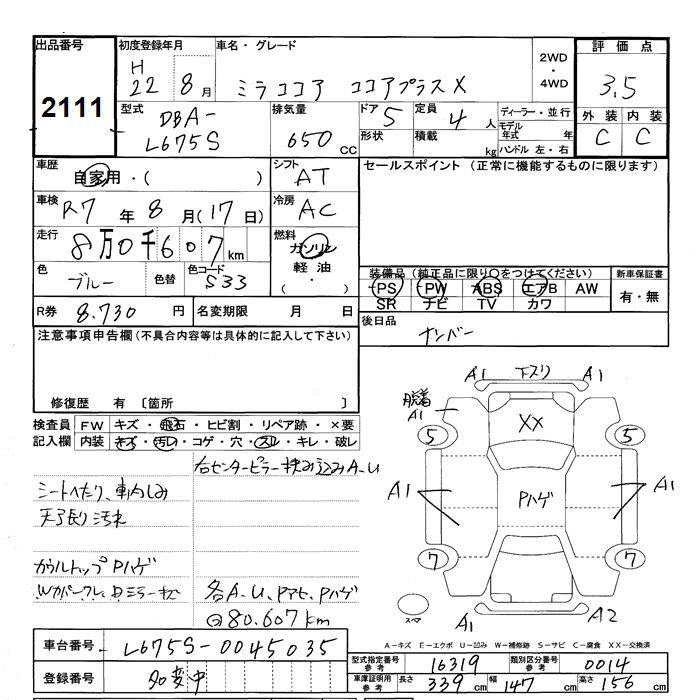 出品番号 初度登録年月 車名・グレード 評価点
2111
H 22 8月
ミラココア ココアプラスX
2WD・4WD
3.5
型式 DBA-L675S
排気量 650 CC
ドア 5 定員 4人
形状 積載 kg
ディーラー・並行
モデル年式 年
ハンドル 左・右
外装 内装
C C
車歴 自家用・( )
シフト AT
セールスポイント(正常に機能するものに限ります)
車検 R7年8月(17日)
冷房 AC
走行 8万0千607km
燃料 ガソリン
軽油
・( )
色 ブルー 色替 色コード S33
装備品(純正品に限り○をつけてください) 新車保証書
PS PW ABS エアB AW 有・無
SR ナビ TV カワ
R券 8.730円 名変期限 月 日
後日品 ナンバー
注意事項申告欄(不具合内容等は具体的に記入して下さい)
修復歴 有 〔箇所 〕
検査員記入欄 FW キズ・飛石・ヒビ割・リペア跡・×要
内装 キズ・汚レ・コゲ・穴・スレ・キレ・破レ
右センターピラー挟み込みA-U
シートへたり、車内しみ
天張り汚れ
カウルトップPハゲ
各A-U、Pアセ、Pハゲ
80.607km
A1 下スリ A1
脱着
A1
XX
5 5
A1 Pハゲ A1
7 7
スペア
A1 A2
A-キズ E-エクボ U-凹み W-補修跡 S-サビ C-腐食 XX-交換済
車台番号 L675S-0045035
登録番号 名変中
型式指定番号 参考 16319 類別区分番号 参考 0014
車庫証明用 参考 長さ 339cm 幅 147cm 高さ 156cm